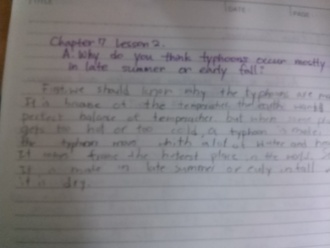 DATE
Chapter 7 Lesson 2.
A. Why do you think typhoons occur mostly
in late summer or early fall?
First, we should know why the typhoons are
It is because of the temperature, the earths world
perfect balance of temperature but when some place
gets too hot or too cold, a typhoon is made.
the typhoon move, which a lot of water and
It from the hottest place in the world,
It is made in late summer or early in fall
it is dry.